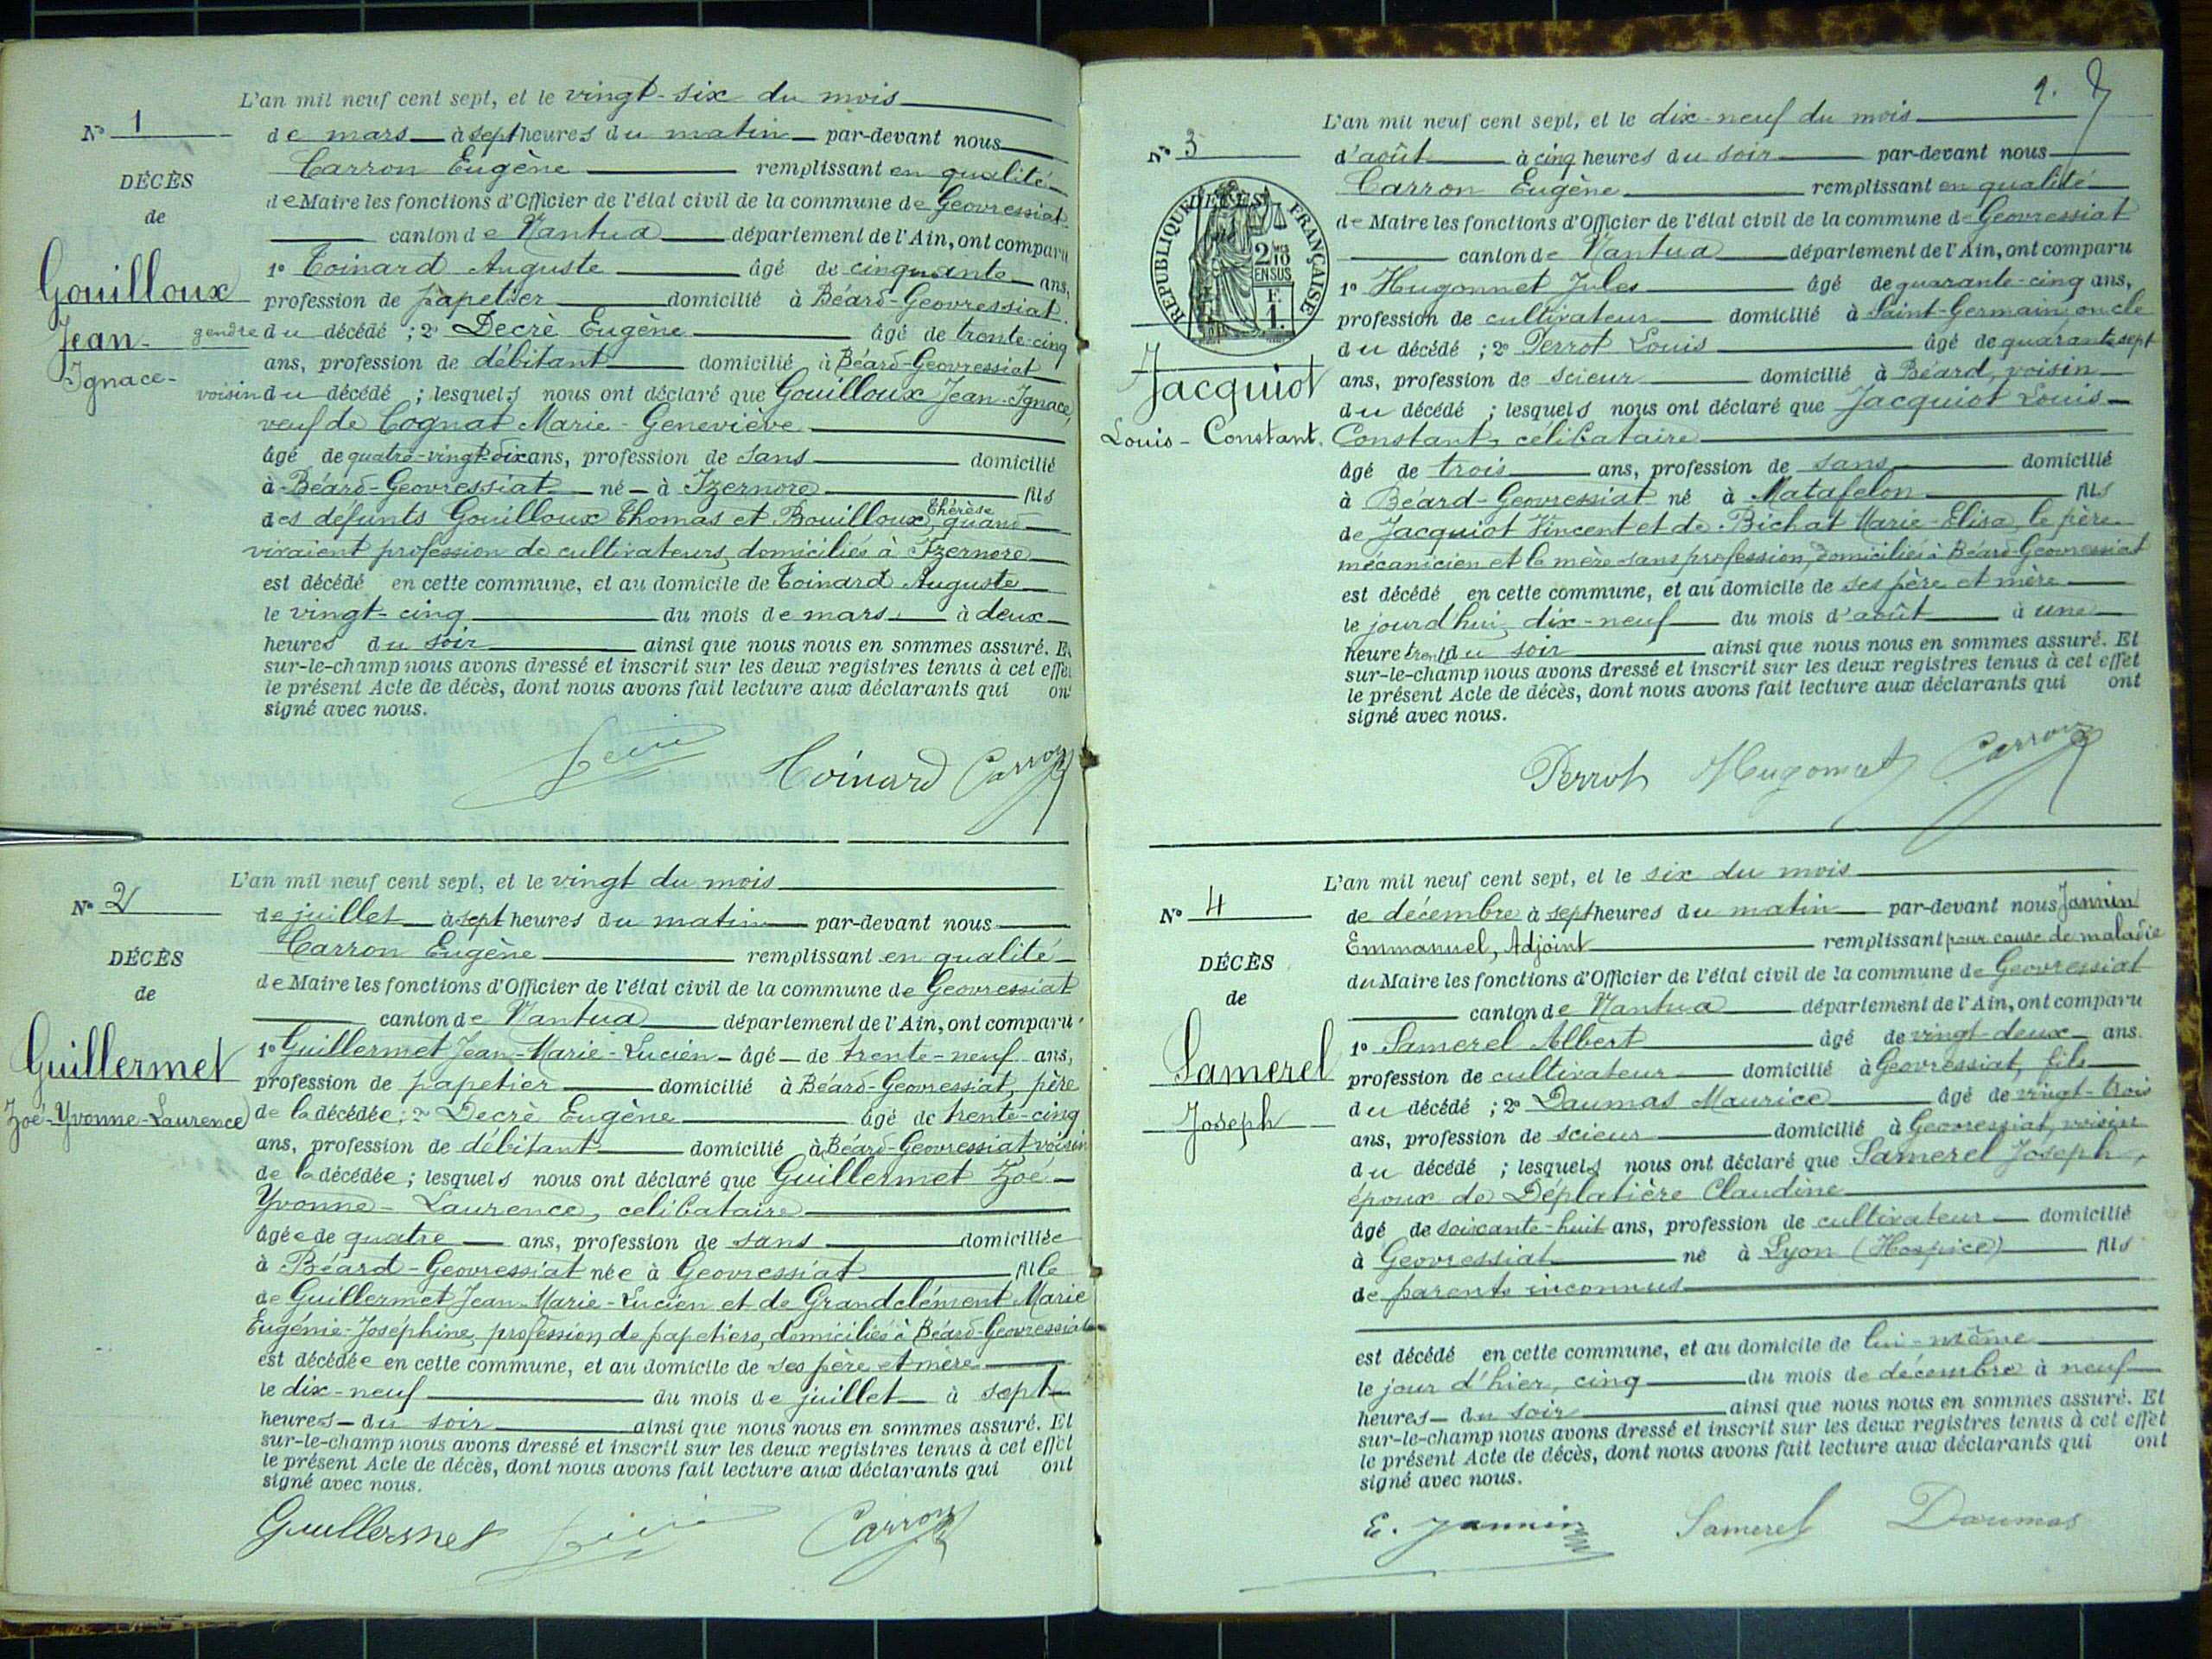 N° 1
DÉCÈS
de
Gouilloux
Jean-
Ignace-
L'an mil neuf cent sept, et le vingt-six du mois
de mars à sept heures du matin par-devant nous
Carron Eugène remplissant en qualité
de Maire les fonctions d'Officier de l'état civil de la commune de Geovressiat
canton de Nantua département de l'Ain, ont comparu
1° Toinard Auguste âgé de cinquante ans,
profession de papetier domicilié à Béard-Geovressiat
gendre du décédé ; 2° Decrè Eugène âgé de trente-cinq
ans, profession de débitant domicilié à Béard-Geovressiat
voisin du décédé ; lesquels nous ont déclaré que Gouilloux Jean-Ignace,
veuf de Cognat Marie-Geneviève
âgé de quatre-vingt-dix ans, profession de sans domicilié
à Béard-Geovressiat né à Izernore fils
des defunts Gouilloux Thomas et Bouilloux Thérèse, quand
vivaient profession de cultivateurs, domiciliés à Izernore
est décédé en cette commune, et au domicile de Toinard Auguste
le vingt-cinq du mois de mars à deux
heures du soir ainsi que nous nous en sommes assuré. Et
sur-le-champ nous avons dressé et inscrit sur les deux registres tenus à cet effet
le présent Acte de décès, dont nous avons fait lecture aux déclarants qui ont
signé avec nous.
Toinard Carron
N° 2
DÉCÈS
de
Guillermet
Zoé-Yvonne-Laurence
L'an mil neuf cent sept, et le vingt du mois
de juillet à sept heures du matin par-devant nous
Carron Eugène remplissant en qualité
de Maire les fonctions d'Officier de l'état civil de la commune de Geovressiat
canton de Nantua département de l'Ain, ont comparu
1° Guillermet Jean-Marie-Lucien âgé de trente-neuf ans,
profession de papetier domicilié à Béard-Geovressiat, père
de la décédée ; 2° Decrè Eugène âgé de trente-cinq
ans, profession de débitant domicilié à Béard-Geovressiat voisin
de la décédée ; lesquels nous ont déclaré que Guillermet Zoé-
Yvonne-Laurence, celibataire
âgée de quatre ans, profession de sans domiciliée
à Béard-Geovressiat née à Geovressiat fille
de Guillermet Jean-Marie-Lucien et de Grandclément Marie
Eugénie-Joséphine, profession de papetiers, domiciliés à Béard-Geovressiat
est décédée en cette commune, et au domicile de ses père et mère
le dix-neuf du mois de juillet à sept
heures du soir ainsi que nous nous en sommes assuré. Et
sur-le-champ nous avons dressé et inscrit sur les deux registres tenus à cet effet
le présent Acte de décès, dont nous avons fait lecture aux déclarants qui ont
signé avec nous.
Guillermet Carron
N° 3
DÉCÈS
RÉPUBLIQUE FRANÇAISE
2/10 EN SUS
F. 1.
Jacquiot
Louis-Constant.
L'an mil neuf cent sept, et le dix-neuf du mois
d'août à cinq heures du soir par-devant nous
Carron Eugène remplissant en qualité
de Maire les fonctions d'Officier de l'état civil de la commune de Geovressiat
canton de Nantua département de l'Ain, ont comparu
1° Hugonnet Jules âgé de quarante-cinq ans,
profession de cultivateur domicilié à Saint-Germain oncle
du décédé ; 2° Perrot Louis âgé de quarante sept
ans, profession de scieur domicilié à Béard, voisin
du décédé ; lesquels nous ont déclaré que Jacquiot Louis-
Constant, célibataire
âgé de trois ans, profession de sans domicilié
à Béard-Geovressiat né à Matafelon fils
de Jacquiot Vincent et de Bichat Marie-Elisa, le père
mécanicien et la mère sans profession, domiciliés à Béard-Geovressiat
est décédé en cette commune, et au domicile de ses père et mère
le jourd'hui, dix-neuf du mois d'août à une
heure trente du soir ainsi que nous nous en sommes assuré. Et
sur-le-champ nous avons dressé et inscrit sur les deux registres tenus à cet effet
le présent Acte de décès, dont nous avons fait lecture aux déclarants qui ont
signé avec nous.
Perrot Hugonnet Carron
N° 4
DÉCÈS
de
Samerel
Joseph
L'an mil neuf cent sept, et le six du mois
de décembre à sept heures du matin par-devant nous Jannin
Emmanuel, Adjoint remplissant pour cause de maladie
du Maire les fonctions d'Officier de l'état civil de la commune de Geovressiat
canton de Nantua département de l'Ain, ont comparu
1° Samerel Albert âgé de vingt-deux ans.
profession de cultivateur domicilié à Geovressiat, fils
du décédé ; 2° Daumas Maurice âgé de vingt-trois
ans, profession de scieur domicilié à Geovressiat, voisin
du décédé ; lesquels nous ont déclaré que Samerel Joseph,
époux de Déplatière Claudine
âgé de soixante-huit ans, profession de cultivateur domicilié
à Geovressiat né à Lyon (Hospice) fils
de parents inconnus
est décédé en cette commune, et au domicile de lui-même
le jour d'hier, cinq du mois de décembre à neuf
heures du soir ainsi que nous nous en sommes assuré. Et
sur-le-champ nous avons dressé et inscrit sur les deux registres tenus à cet effet
le présent Acte de décès, dont nous avons fait lecture aux déclarants qui ont
signé avec nous.
E. Jannin Samerel Daumas